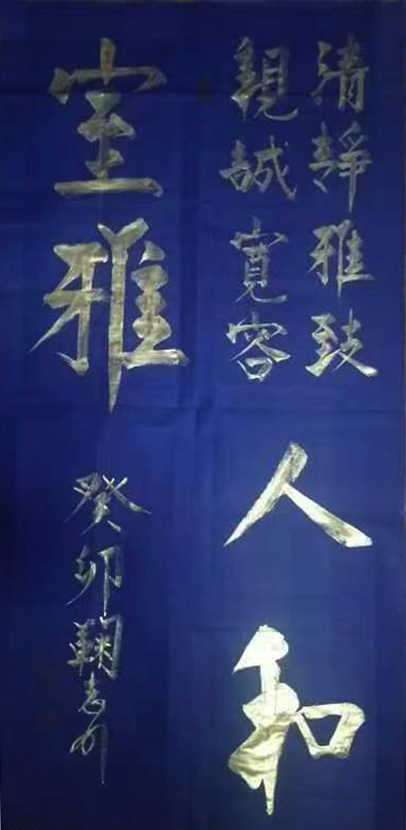 清靜雅致
親誠寬容
人和
室雅
癸卯鞠志卯